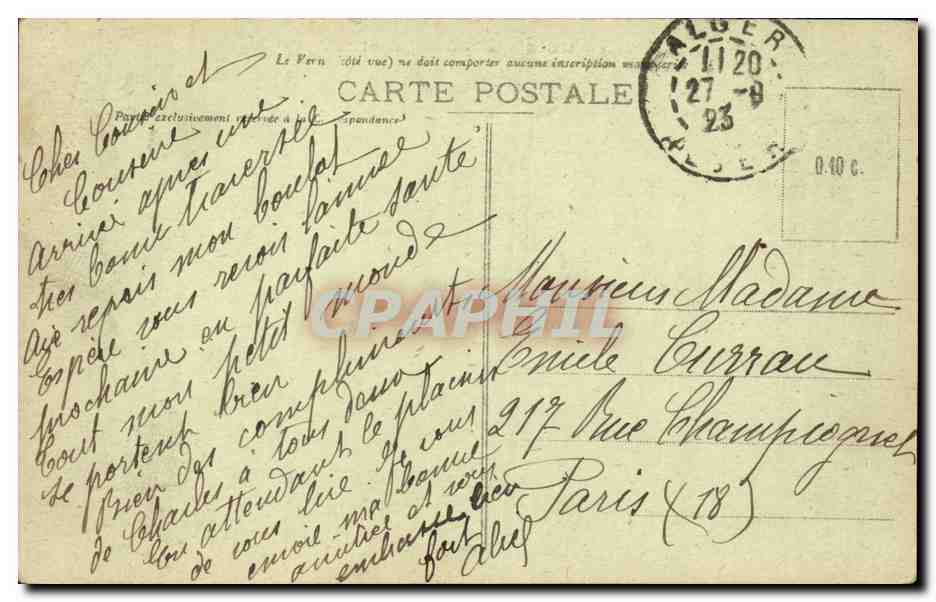 Le Verso (côté vue) ne doit comporter aucune inscription manuscrite
CARTE POSTALE
Partie exclusivement réservée à la Correspondance
ALGER
11 20
27 -9
23
ALGER
0.10 c.
Cher Cousin et
Cousine
Arrivé après une
tres bonne traversée
aye repris mon boulot
Espère vous revoir l'année
prochaine en parfaite santé
tout mon petit monde
se portent bien
Bien des compliments
de Charles à tous deux
En attendant le plaisir
de vous lire. Je vous
envoie ma bonne
amitiée et vous
embrasse bien
fort
Abel
Monsieur Madame
Emile Currau
217 Rue Championnet
Paris (18)
CPAPHIL